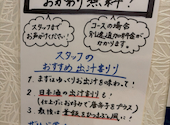 おかわり無料!
スタッフまで
お声がけください。
コースの場合
別途追加料金が
かかります。
スタッフの
おすすめ 出汁割り
1 まずはゆっくりお出汁を味わって!
2 日本酒の出汁割りも!
(仕上げにお好みで唐辛子をプラス)
3 最後は